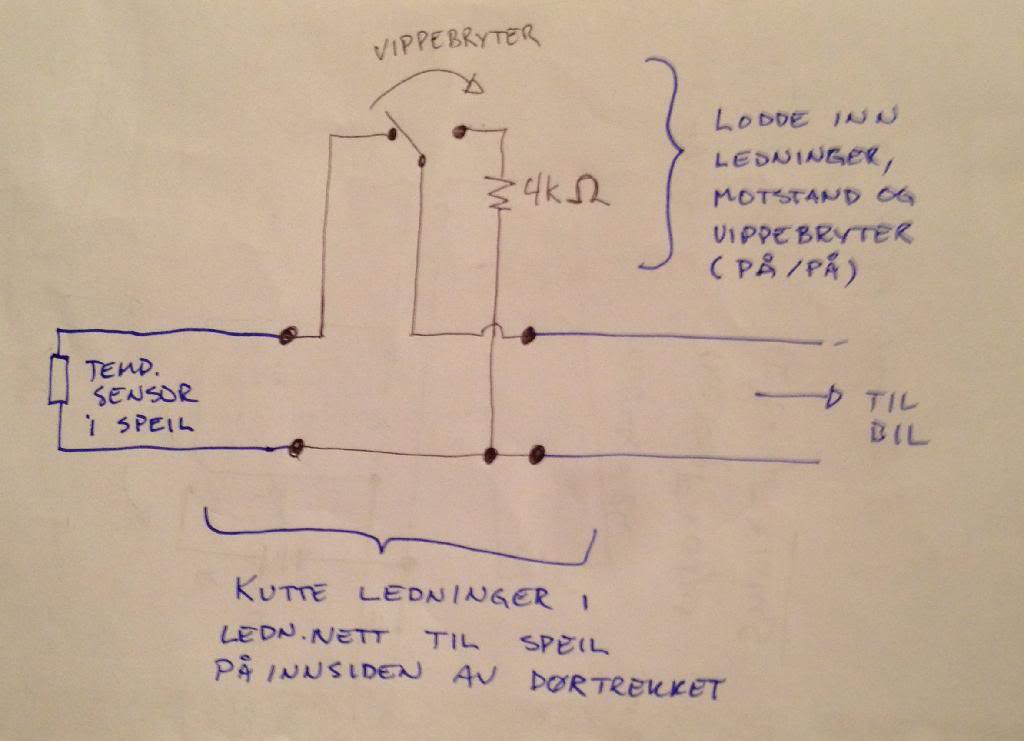 VIPPEBRYTER
LODDE INN
LEDNINGER,
MOTSTAND OG
VIPPEBRYTER
(PÅ/PÅ)
4KΩ
TEMP.
SENSOR
I SPEIL
TIL
BIL
KUTTE LEDNINGER I
LEDN.NETT TIL SPEIL
PÅ INNSIDEN AV DØRTREKKET